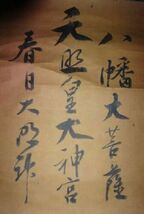 八幡大菩薩
天照皇大神宮
春日大明神